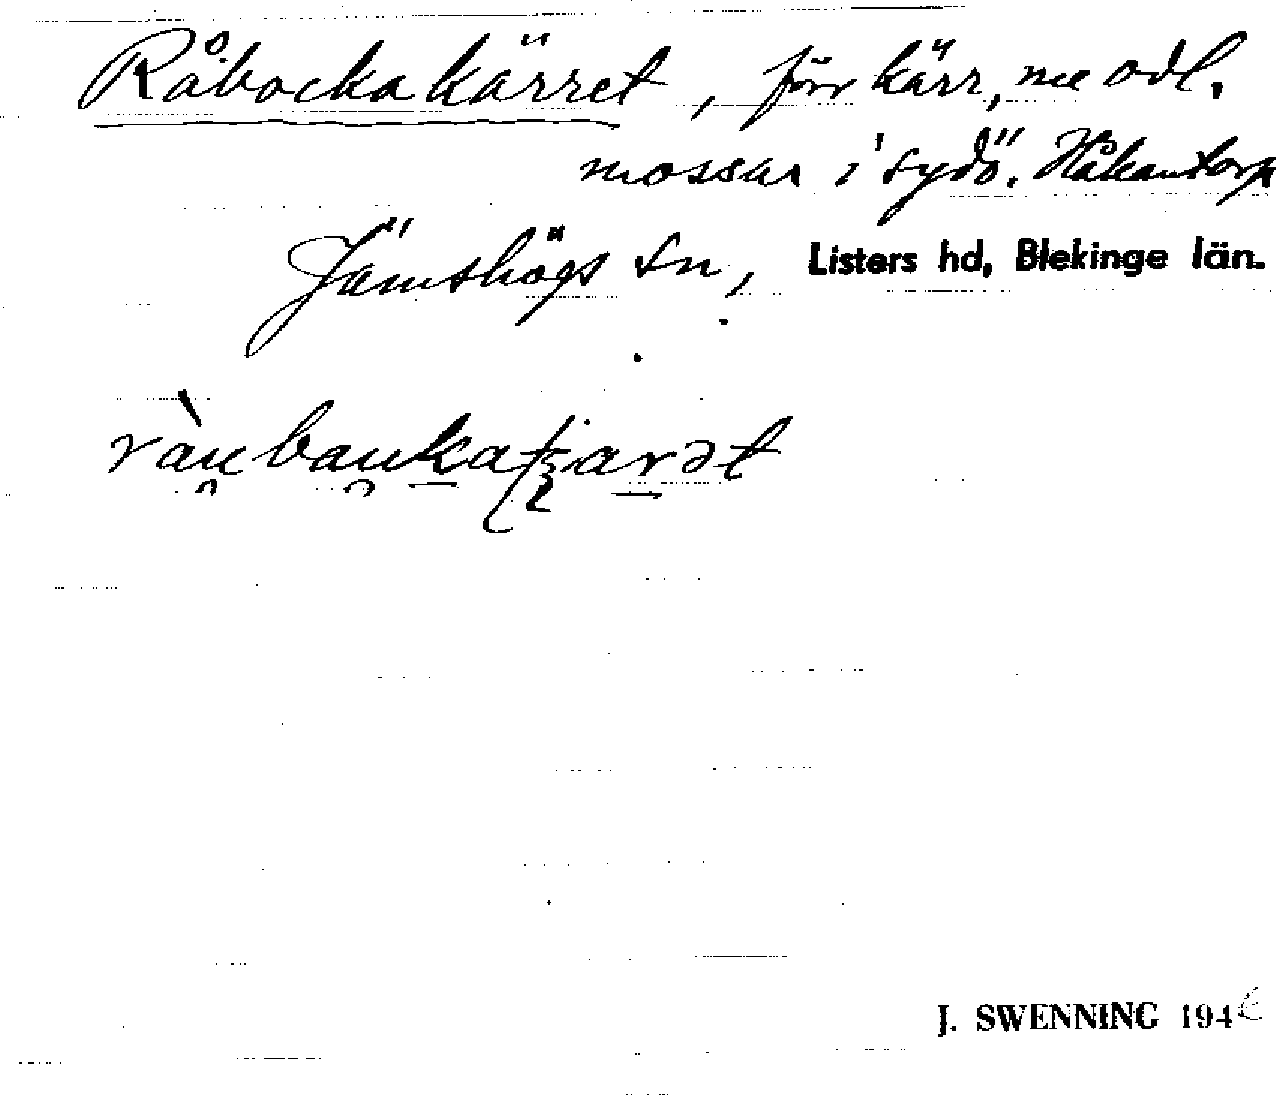 Råbockakärret, förr kärr, nu odl.
mossar i sydö. Håkantorp
Jämshögs sn, Listers hd, Blekinge län.
J. SWENNING 194